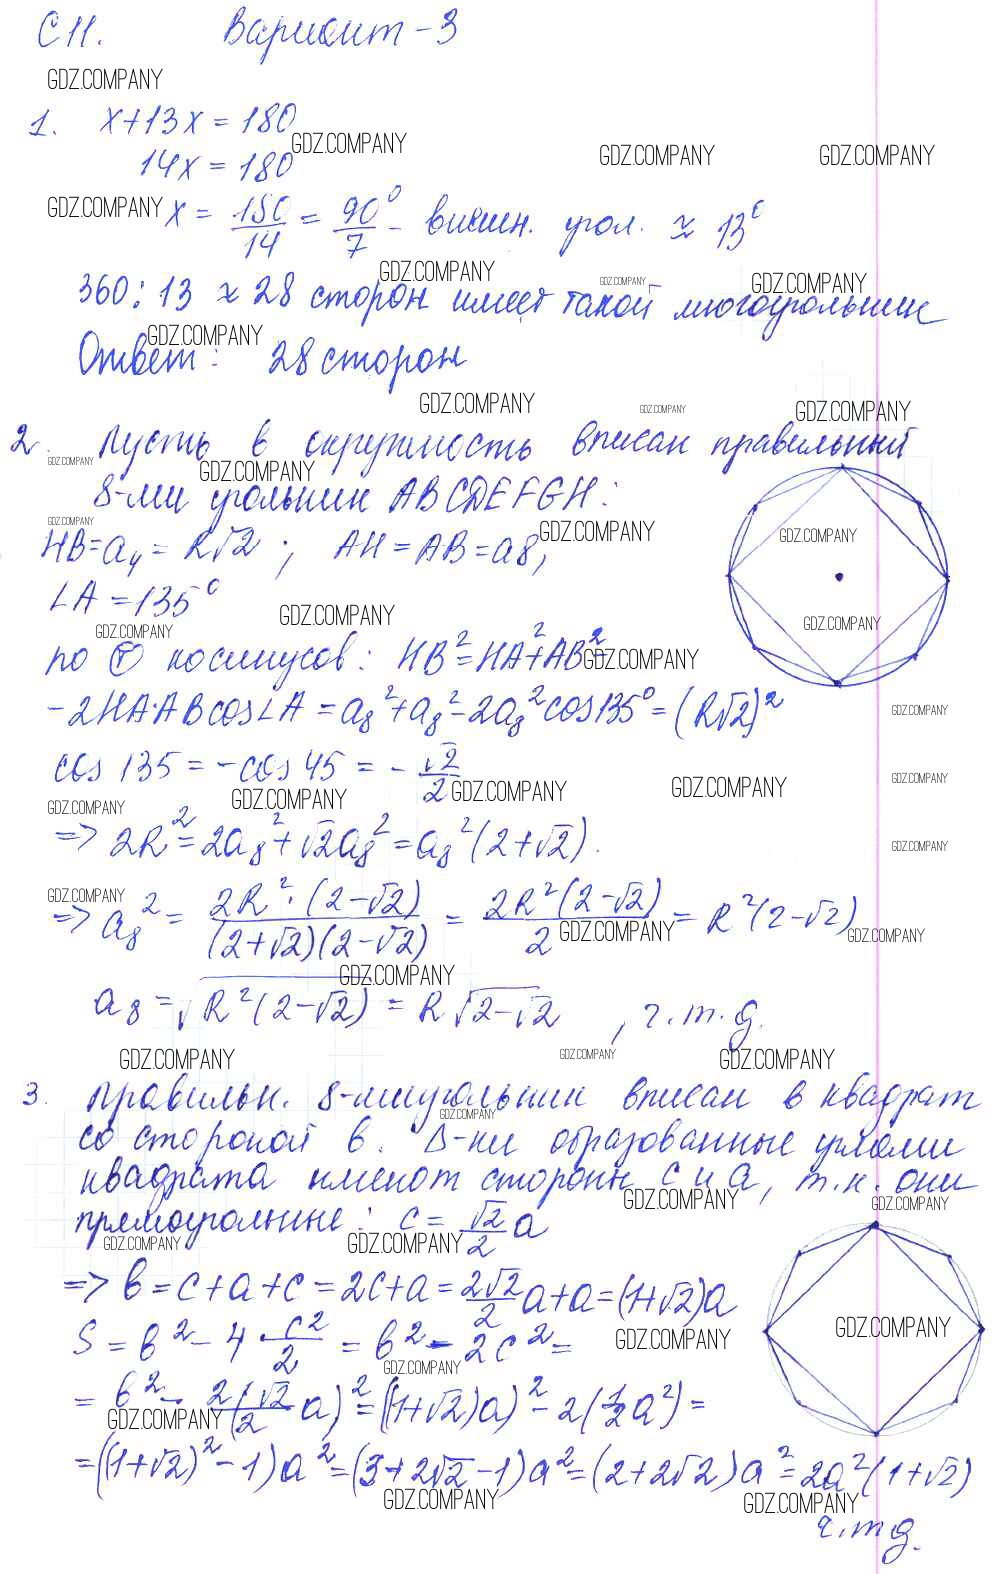 С11. Вариант-3
GDZ.COMPANY
1. x+13x = 180
GDZ.COMPANY GDZ.COMPANY GDZ.COMPANY
14x = 180
GDZ.COMPANY x = 180/14 = 90°/7 - внешн. угол. ≈ 13°
GDZ.COMPANY
360 : 13 ≈ 28 сторон имеет такой многоугольник
GDZ.COMPANY GDZ.COMPANY
GDZ.COMPANY
Ответ: 28 сторон
GDZ.COMPANY GDZ.COMPANY GDZ.COMPANY
2. Пусть в окружность вписан правильный
GDZ.COMPANY GDZ.COMPANY
8-ми угольник ABCDEFGH:
GDZ.COMPANY GDZ.COMPANY GDZ.COMPANY
HB = a₄ = R√2 ; AH = AB = a8,
∠A = 135°
GDZ.COMPANY GDZ.COMPANY GDZ.COMPANY
по Ⓣ косинусов: HB² = HA² + AB² -
GDZ.COMPANY
-2HA·AB cos∠A = a₈² + a₈² - 2a₈² cos135° = (R√2)²
GDZ.COMPANY
cos 135 = -cos 45 = -√2/2
GDZ.COMPANY GDZ.COMPANY GDZ.COMPANY GDZ.COMPANY GDZ.COMPANY
=> 2R² = 2a₈² + √2a₈² = a₈²(2+√2).
GDZ.COMPANY
GDZ.COMPANY
=> a₈² = 2R²·(2-√2)/(2+√2)(2-√2) = 2R²(2-√2)/2 = R²(2-√2)
GDZ.COMPANY GDZ.COMPANY
GDZ.COMPANY
a₈ = √R²(2-√2) = R√2-√2 , ч.т.д.
GDZ.COMPANY GDZ.COMPANY GDZ.COMPANY
3. Правильн. 8-миугольник вписан в квадрат
GDZ.COMPANY
со стороной в. Δ-ки образованные углами
квадрата имеют стороны с и а, т.к. они
GDZ.COMPANY GDZ.COMPANY
прямоугольные: c = √2/2 a
GDZ.COMPANY GDZ.COMPANY
=> в = c + a + c = 2c + a = 2√2/2 a + a = (1+√2)a
GDZ.COMPANY GDZ.COMPANY
S = в² - 4 · c²/2 = в² - 2c² =
GDZ.COMPANY
= в² - 2(√2/2 a)² = ((1+√2)a)² - 2(1/2 a²) =
GDZ.COMPANY
= ((1+√2)² - 1)a² = (3+2√2-1)a² = (2+2√2)a² = 2a²(1+√2)
GDZ.COMPANY GDZ.COMPANY
ч.т.д.